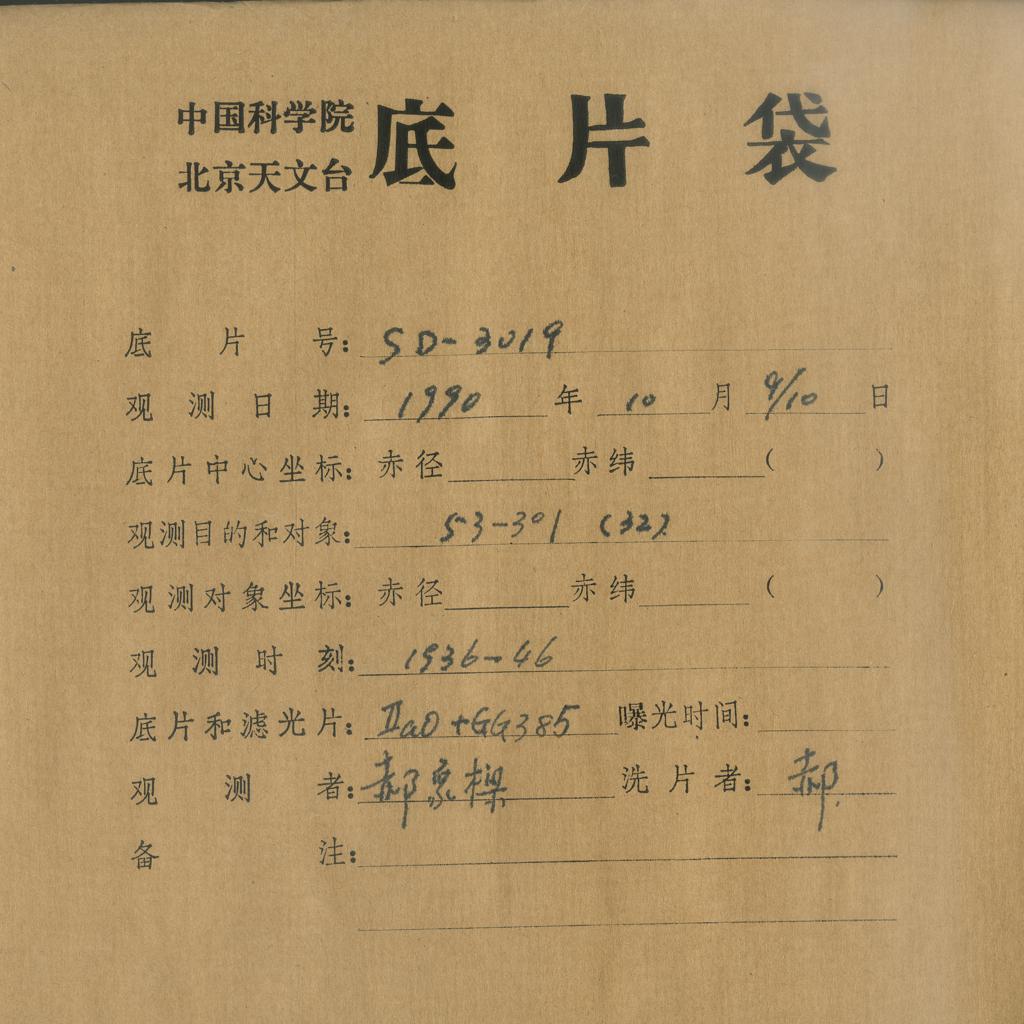 中国科学院
北京天文台
底片袋
底片号：SD-3019
观测日期：1990年10月9/10日
底片中心坐标：赤径 赤纬 （ ）
观测目的和对象：53-301 (32)
观测对象坐标：赤径 赤纬 （ ）
观测时刻：1936-46
底片和滤光片：IIaO+GG385 曝光时间：
观测者：郝象樑 洗片者：郝
备注：